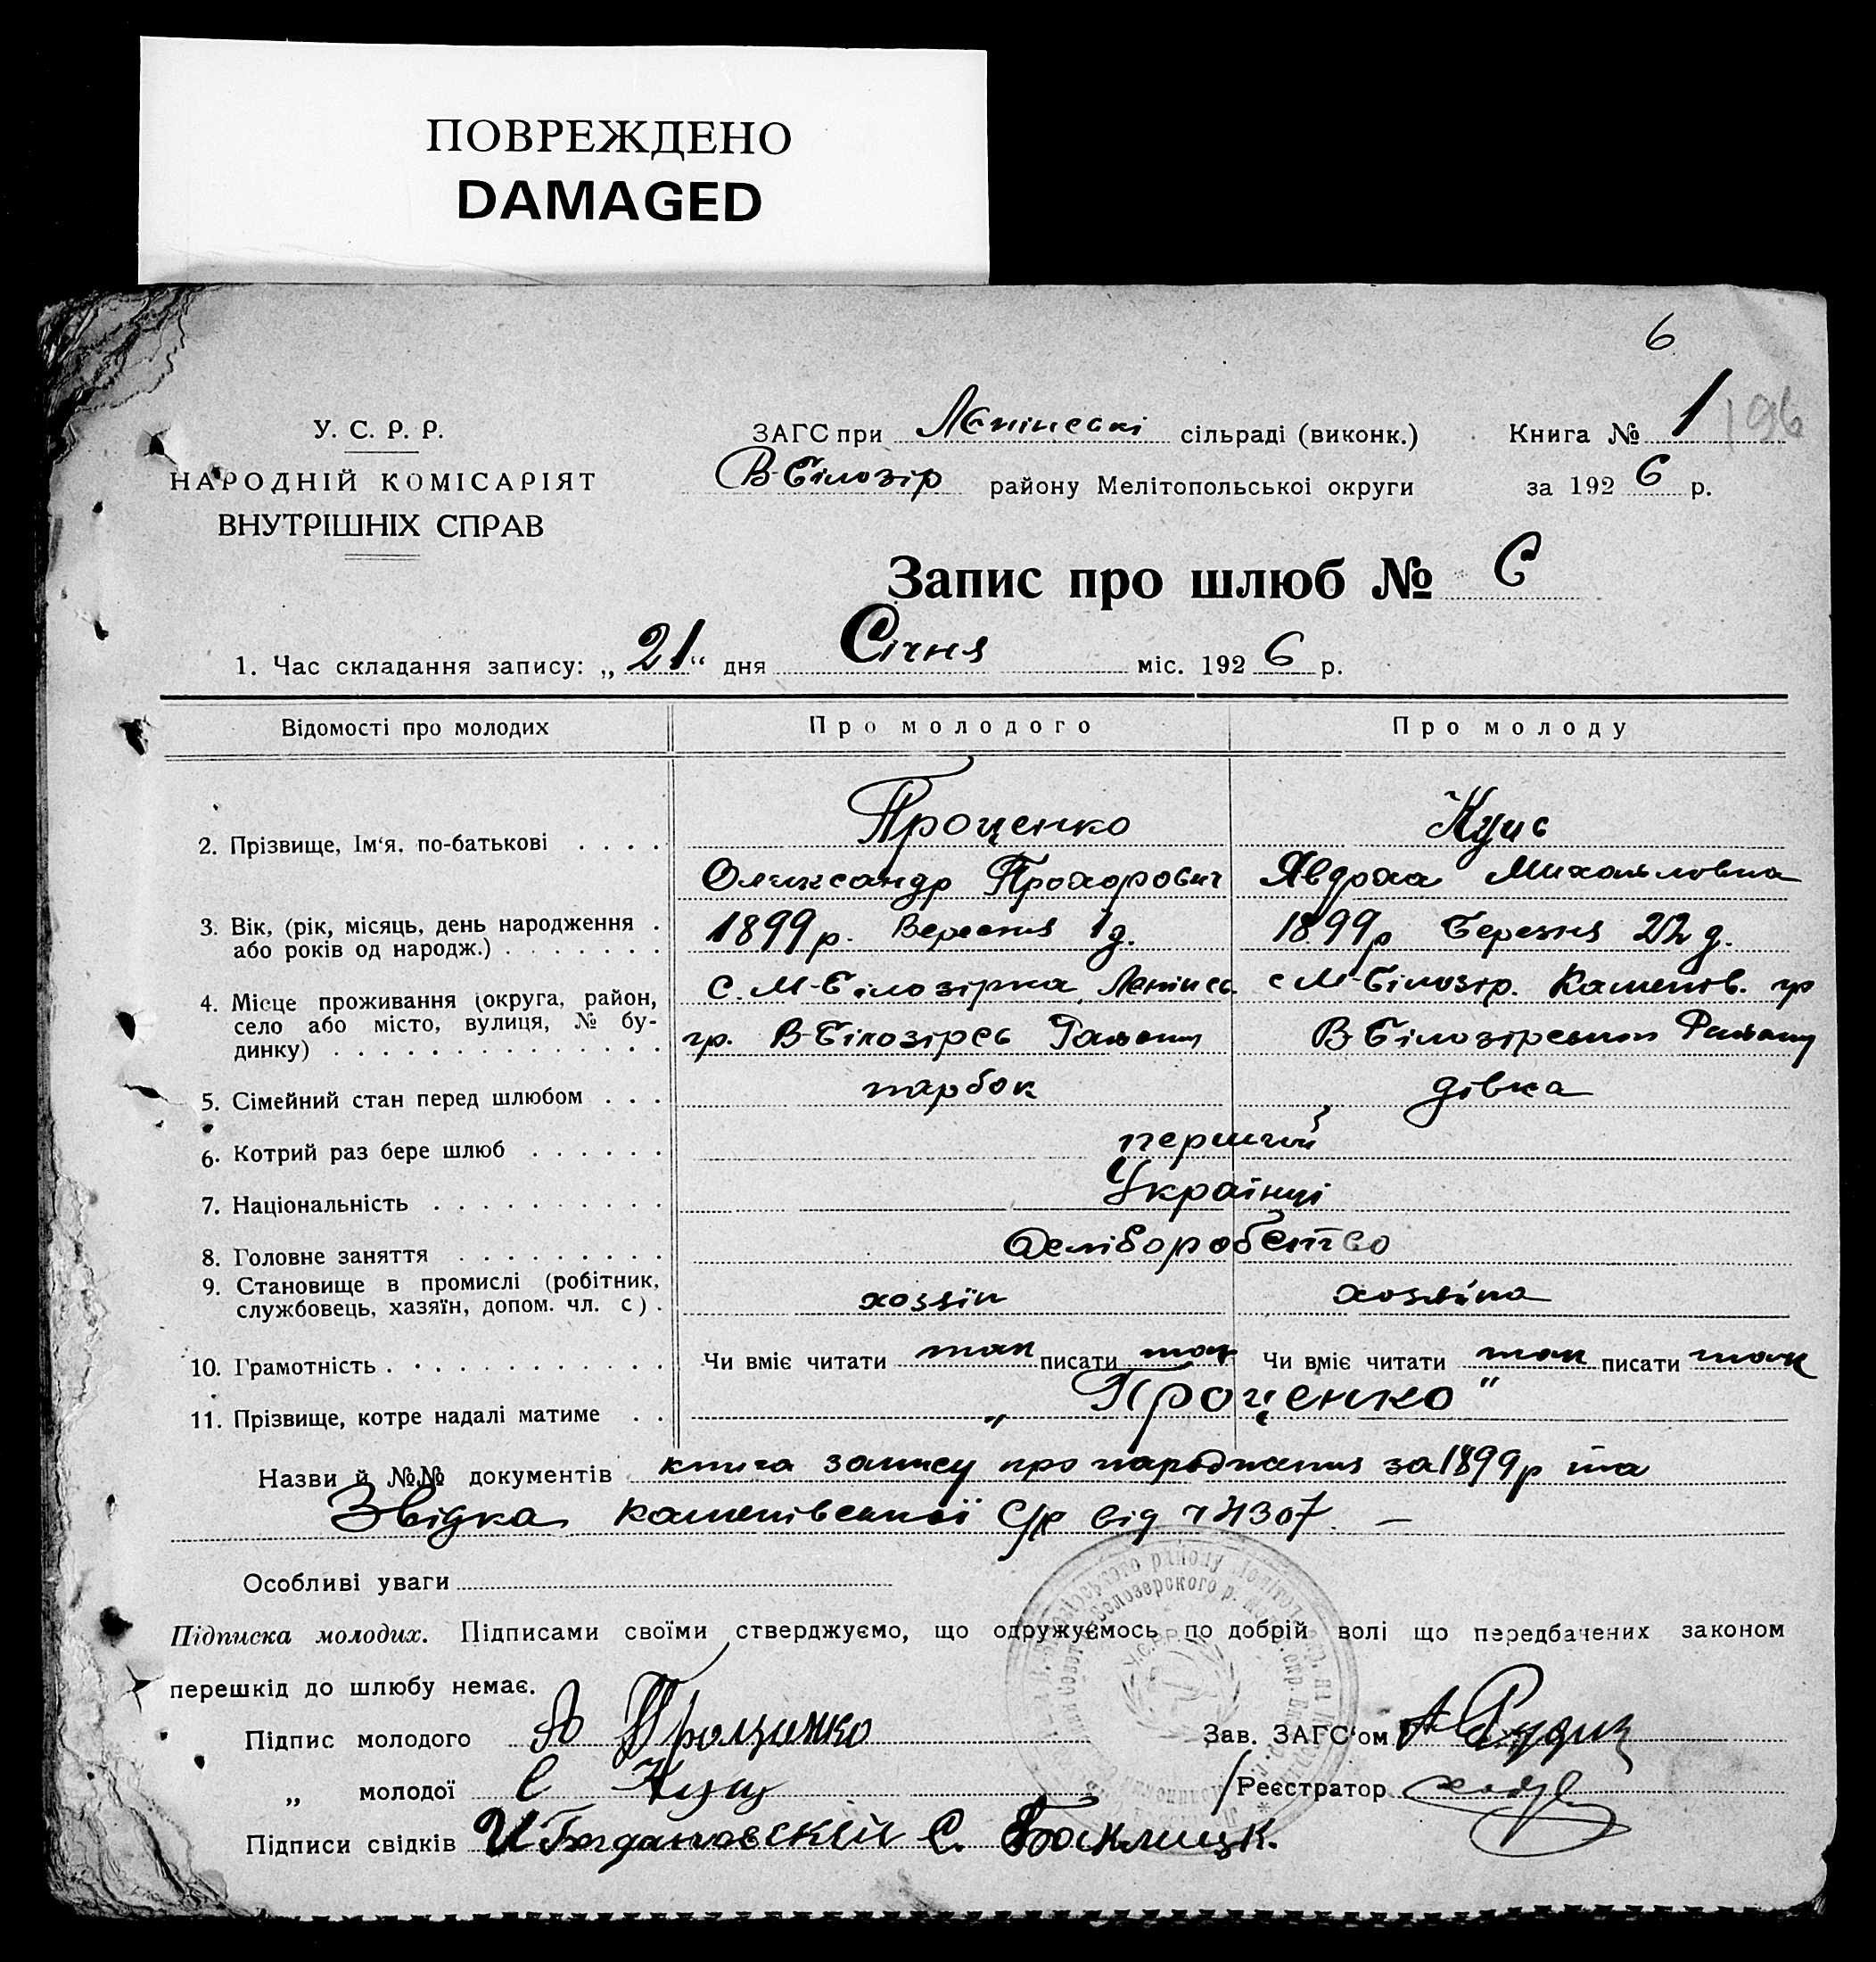 ПОВРЕЖДЕНО
DAMAGED
6
У. С. Р. Р.
НАРОДНІЙ КОМІСАРІЯТ
ВНУТРІШНІХ СПРАВ
ЗАГС при Ленінські сільраді (виконк.)
Книга № 1 196
В-Білозір району Мелітопольської округи
за 1926 р.
Запис про шлюб № 6
1. Час складання запису: „21“ дня Січня міс. 1926 р.
Відомості про молодих
Про молодого
Про молоду
2. Прізвище, Ім‘я, по-батькові . . . .
Проценко
Кущ
Олександр Прохорович
Явдоха Михайловна
3. Вік, (рік, місяць, день народження .
або років од народж.) . . . . . . .
1899р. Вересня 1 д.
1899р Березня 22 д.
4. Місце проживання (округа, район,
село або місто, вулиця, № бу-
динку) . . . . . . . . . . . . . .
с. М-Білозірка, Ленінсь.
гр. В-Білозірсь Району
с М-Білозір. Каменів. гр
В-Білозірської Району
5. Сімейний стан перед шлюбом . . .
парбок
дівка
6. Котрий раз бере шлюб . . . . . .
перший
7. Національність . . . . . . . . . .
Українці
8. Головне заняття . . . . . . . . .
9. Становище в промислі (робітник,
службовець, хазяїн, допом. чл. с) .
хозяїн
хозяїна
10. Грамотність . . . . . . . . . . . .
Чи вміє читати так писати так
Чи вміє читати так писати так
11. Прізвище, котре надалі матиме . .
„Проценко"
Назви й №№ документів книга запису про народження за 1899р та
Звідка каменівської С/р від
Особливі уваги
Підписка молодих. Підписами своїми стверджуємо, що одружуємось по добрій волі що передбачених законом
перешкід до шлюбу немає.
Підпис молодого Проценко
Зав. ЗАГС‘ом
„ молодої Е Кущ
Реєстратор
Підписи свідків И Богдановскій С.